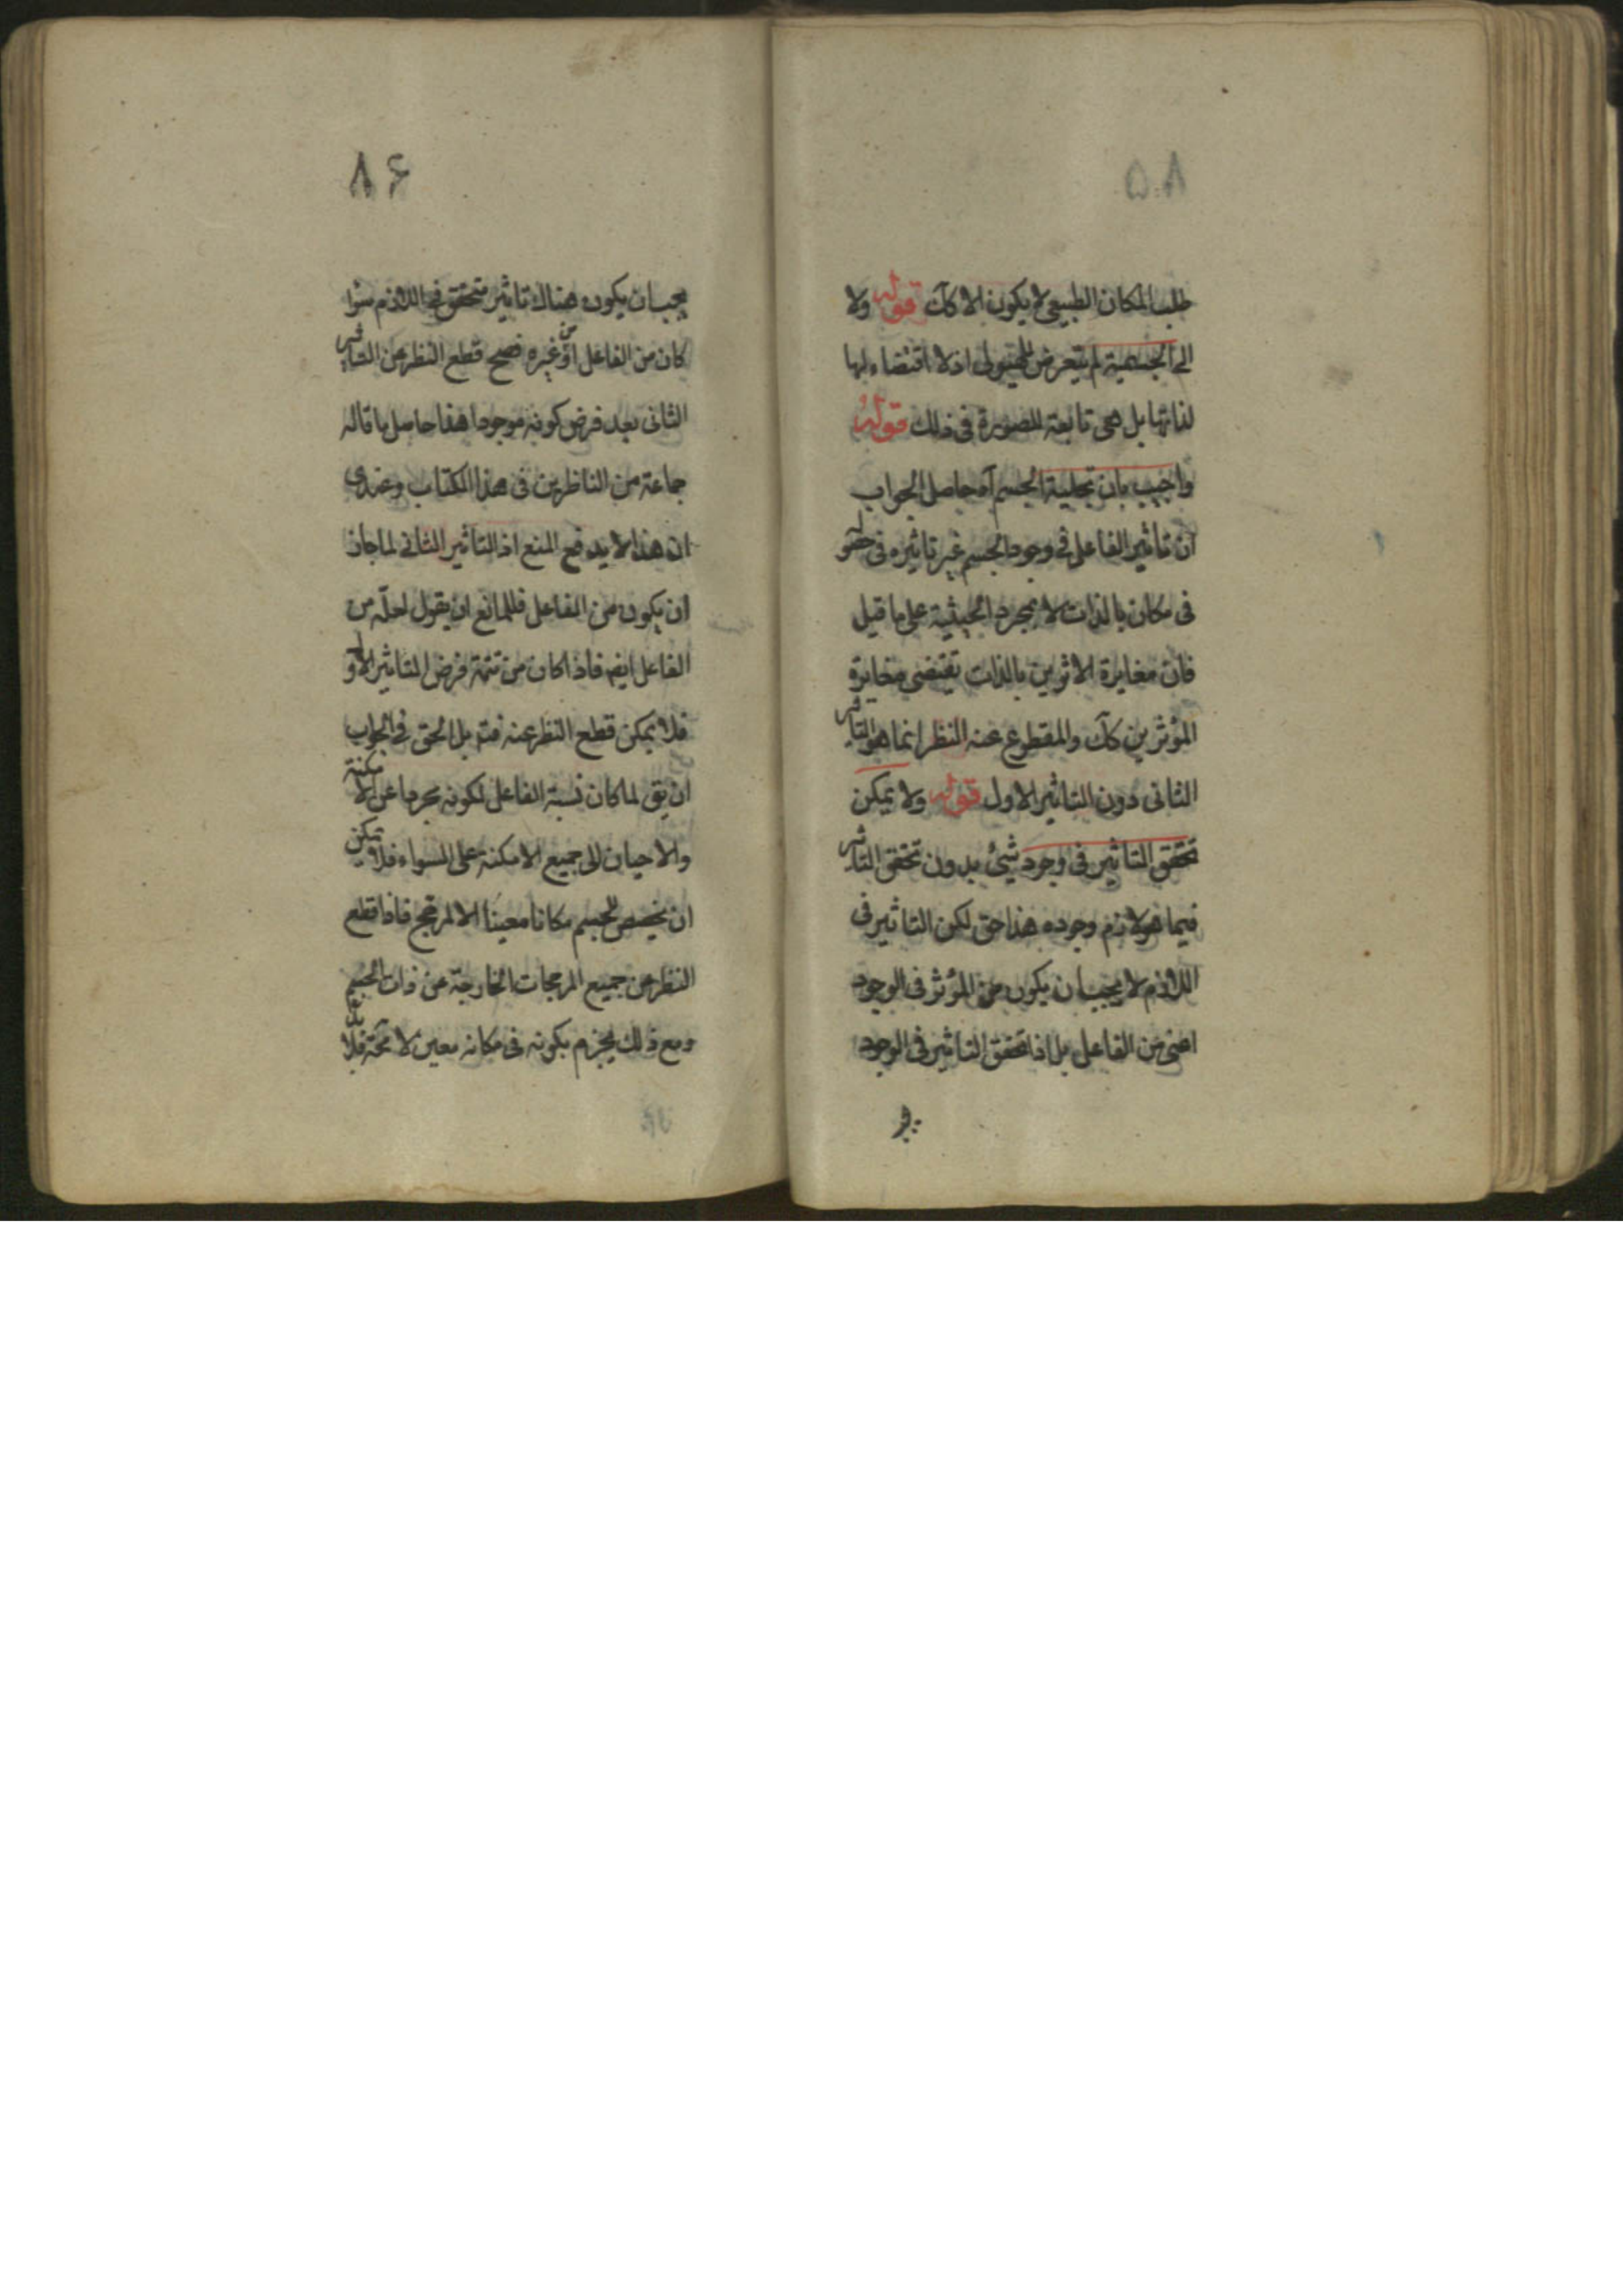 ۵۸
طلب المكان الطبيعى لا يكون الا كك قوله ولا
الى الجسمية لم يتعرض للهيولى اذ لا اقتضاء لها
لذاتها بل هى تابعة للصورة فى ذلك قوله
واجيب بان تخلية الجسم آه حاصل الجواب
ان تاثير الفاعل فى وجود الجسم غير تاثيره فى حصوله
فى مكان بالذات لا بمجرد الحيثية على ما قيل
فان مغايرة الاثرين بالذات تقتضى مغايرة
المؤثرين كك والمقطوع عنه النظر انما هو التاثير
الثانى دون التاثير الاول قوله ولا يمكن
تحقق التاثير فى وجود شئ بدون تحقق التاثير
فيما هو لازم وجوده هذا حق لكن التاثير فى
اللازم لا يجب ان يكون من المؤثر فى الوجود
اعنى من الفاعل بل اذا تحقق التاثير فى الوجود
۸۶
يجب ان يكون هناك تاثير متحقق فى اللازم سوا
كان من الفاعل او من غيره فصح قطع النظر عن التاثير
الثانى بعد فرض كونه موجودا هذا حاصل ما قاله
جماعة من الناظرين فى هذا الكتاب وعندى
ان هذا لا يدفع المنع اذ التاثير الثانى لما جاز
ان يكون من الفاعل فللمانع ان يقول لعله من
الفاعل ايضا فاذا كان من تتمة فرض التاثير الاول
فلا يمكن قطع النظر عنه فتم بل الحق فى الجواب
ان يق لما كان نسبة الفاعل لكونه مجردا عن الامكنة
والاحيان الى جميع الامكنة على السواء فلا يمكن
ان يخصص للجسم مكانا معينا الا لمرجح فاذا قطع
النظر عن جميع المرجحات الخارجة عن ذات الجسم
ومع ذلك يجزم بكونه فى مكانه معين لا محة فلا بد